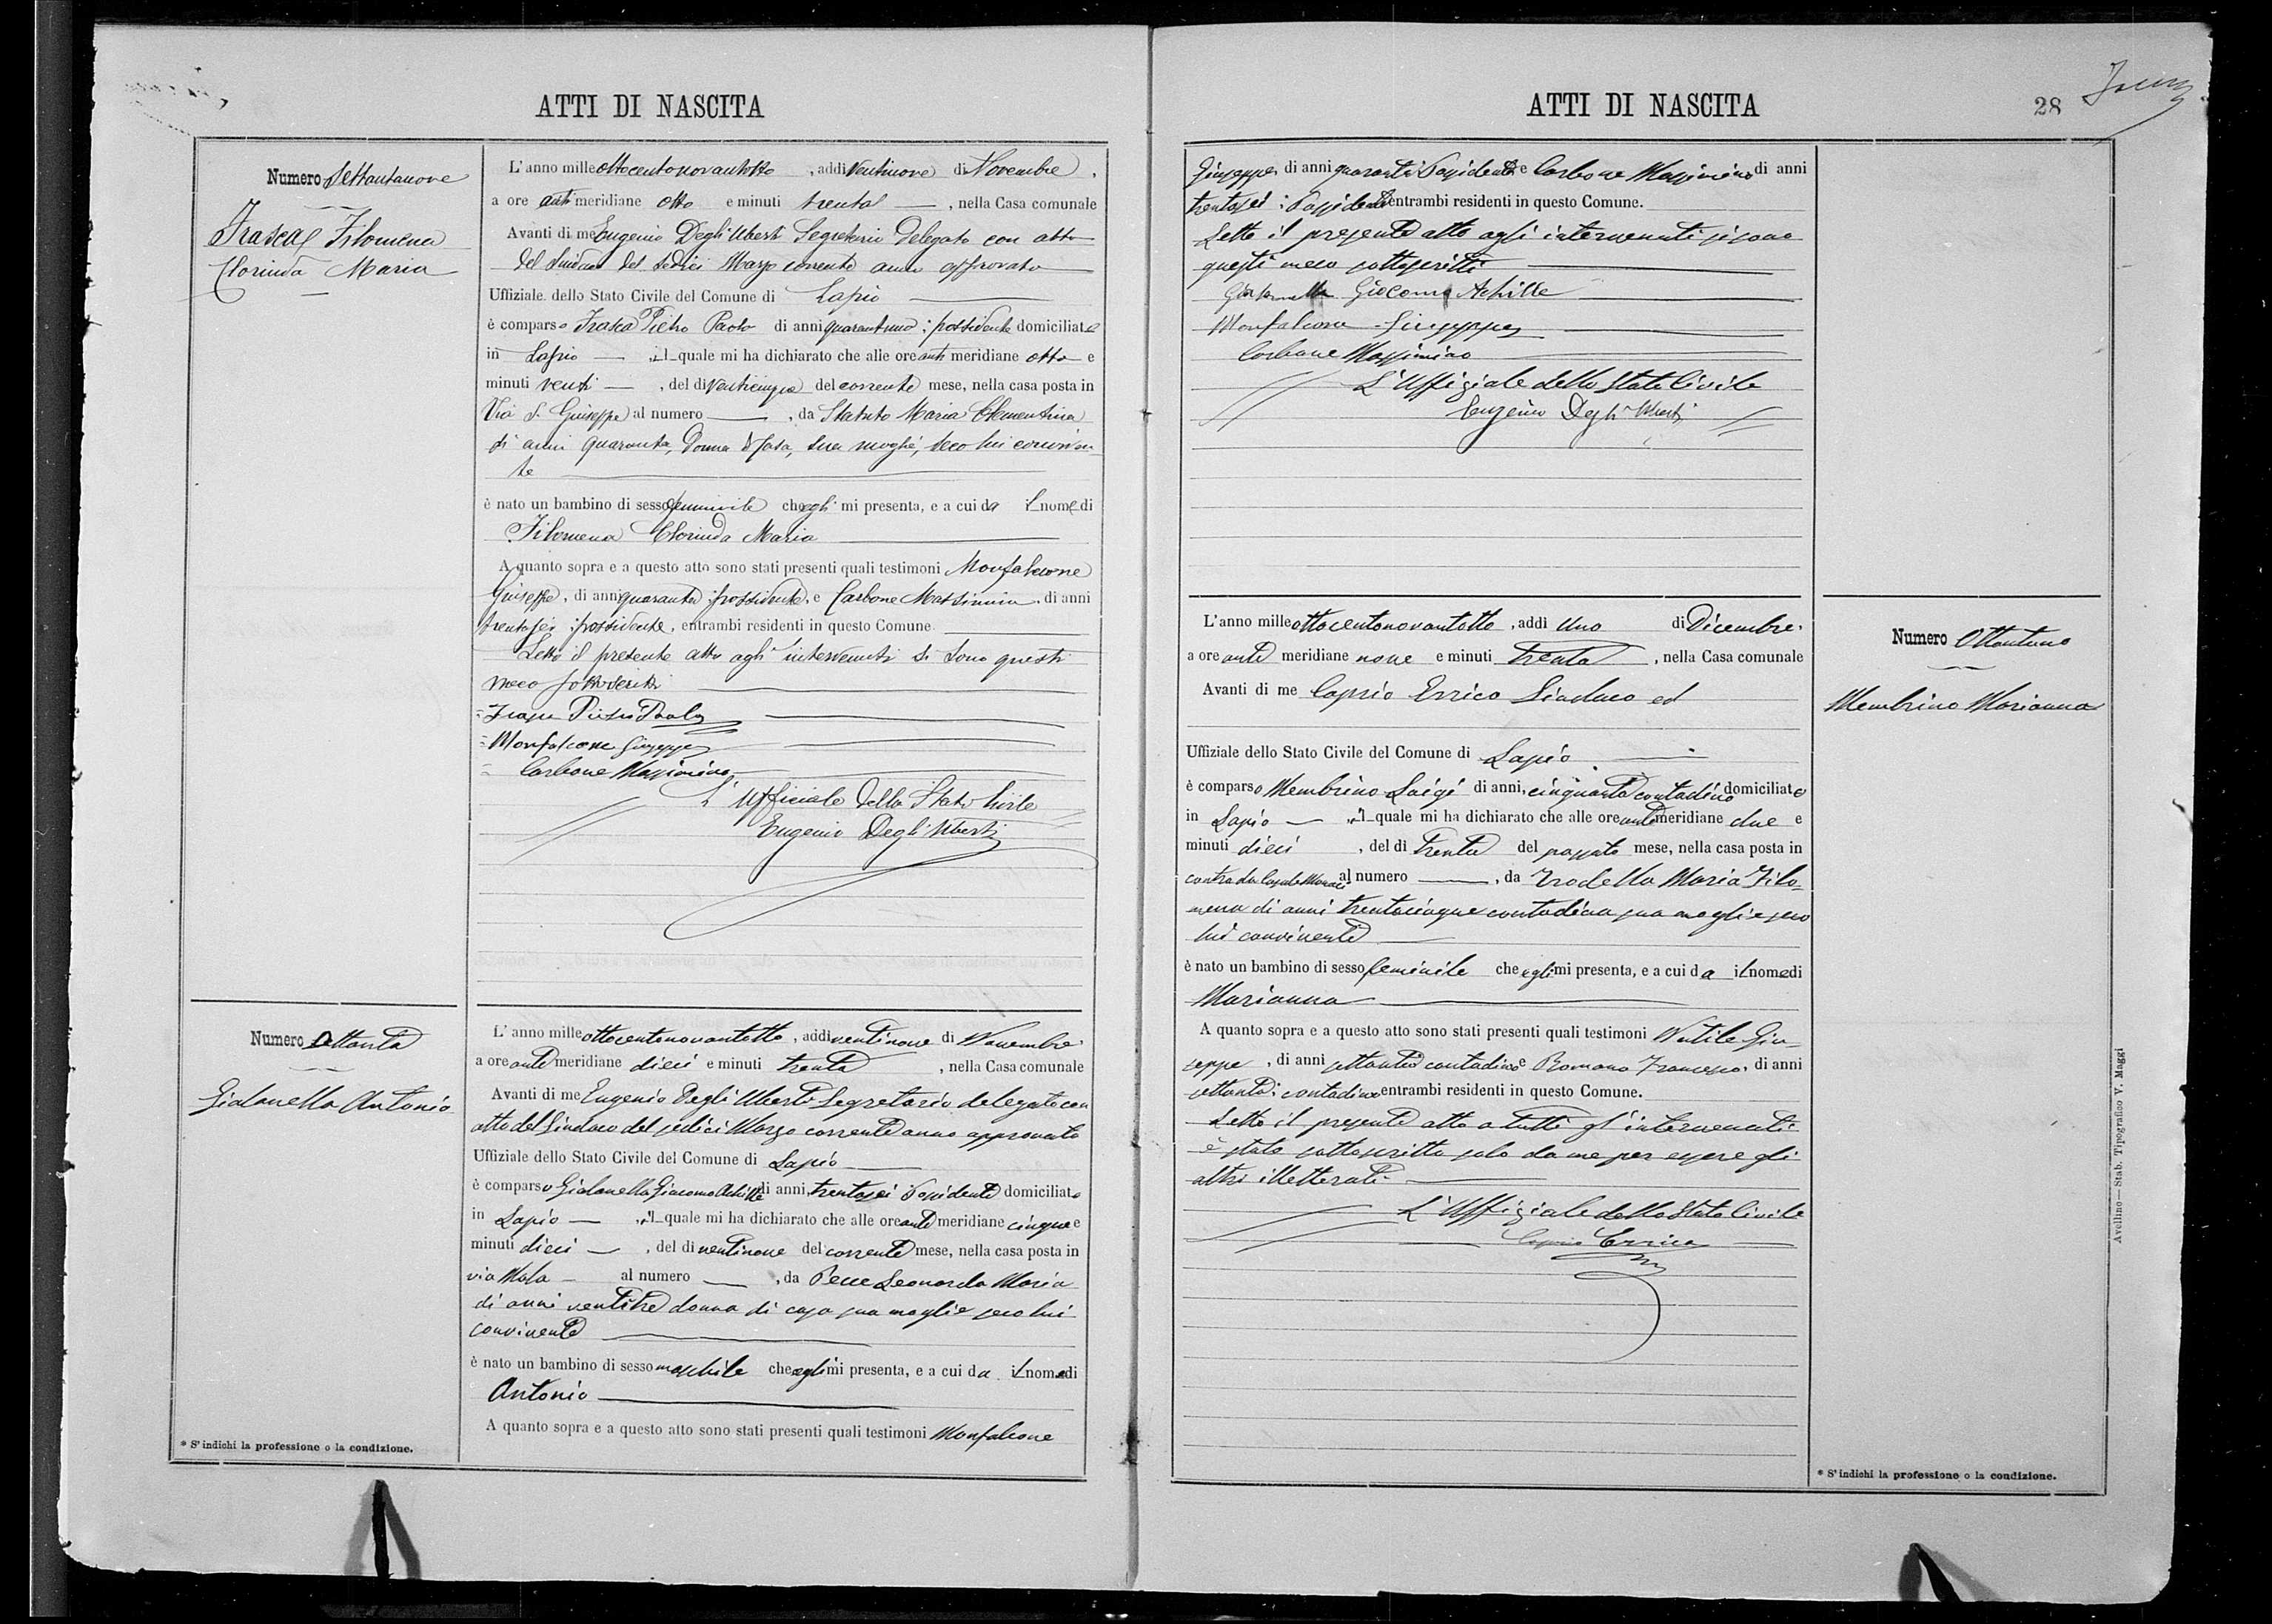 ATTI DI NASCITA
Numero Settantanove
Frasca Filomena
Clorinda Maria
L'anno mille ottocentonovantotto, addì ventinove di Novembre,
a ore anti meridiane otto e minuti trenta, nella Casa comunale
Avanti di me Eugenio Degli Uberti Segretario Delegato con atto
del Sindaco del sedici Marzo corrente anno approvato
Uffiziale dello Stato Civile del Comune di Lapio
è comparso Frasca Pietro Paolo di anni quarantuno; possidente domiciliato
in Lapio, il quale mi ha dichiarato che alle ore anti meridiane otto e
minuti venti, del dì venticinque del corrente mese, nella casa posta in
Via S. Giuseppe al numero, da Statuto Maria Clementina
di anni quaranta, donna di casa, sua moglie, seco lui conviven
te
è nato un bambino di sesso femminile che egli mi presenta, e a cui da il nome di
Filomena Clorinda Maria
A quanto sopra e a questo atto sono stati presenti quali testimoni Monfalcone
Giuseppe, di anni quaranta possidente, e Carbone Massimino, di anni
trentasei possidente, entrambi residenti in questo Comune.
Letto il presente atto agli intervenuti si sono questi
meco sottoscritti
Frasca Pietro Paolo
Monfalcone Giuseppe
Carbone Massimino
L'Ufficiale dello Stato Civile
Eugenio Degli Uberti
Numero Ottanta
Gialanella Antonio
L'anno mille ottocentonovantotto, addì ventinove di Novembre
a ore anti meridiane dieci e minuti trenta, nella Casa comunale
Avanti di me Eugenio Degli Uberti Segretario delegato con
atto del Sindaco del sedici Marzo corrente anno approvato
Uffiziale dello Stato Civile del Comune di Lapio
è comparso Gialanella Giacomo Achille di anni trentasei Possidente domiciliato
in Lapio, il quale mi ha dichiarato che alle ore anti meridiane cinque e
minuti dieci, del dì ventinove del corrente mese, nella casa posta in
via Mala al numero, da Pece Leonarda Maria
di anni ventitre donna di casa sua moglie seco lui
convivente
è nato un bambino di sesso maschile che egli mi presenta, e a cui da il nome di
Antonio
A quanto sopra e a questo atto sono stati presenti quali testimoni Monfalcone
* S'indichi la professione o la condizione.
ATTI DI NASCITA
28
Giuseppe, di anni quaranta Possidente e Carbone Massimino di anni
trentasei; Possidente entrambi residenti in questo Comune.
Letto il presente atto agli intervenuti si sono
questi meco sottoscritti
Gialanella Giacomo Achille
Monfalcone Giuseppe
Carbone Massimino
L'Uffiziale dello Stato Civile
Eugenio Degli Uberti
Numero Ottantuno
Membrino Marianna
L'anno mille ottocentonovantotto, addì uno di Dicembre
a ore anti meridiane nove e minuti trenta, nella Casa comunale
Avanti di me Caprio Errico Sindaco ed
Uffiziale dello Stato Civile del Comune di Lapio
è comparso Membrino Luigi di anni cinquanta contadino domiciliato
in Lapio, il quale mi ha dichiarato che alle ore anti meridiane due e
minuti dieci, del dì trenta del passato mese, nella casa posta in
contrada al numero, da Maria Filo-
mena di anni trentacinque contadina sua moglie seco
lui convivente
è nato un bambino di sesso feminile che egli mi presenta, e a cui da il nome di
Marianna
A quanto sopra e a questo atto sono stati presenti quali testimoni Nutile Giu-
seppe, di anni settanta contadino e Romano Francesco, di anni
settanta; contadino entrambi residenti in questo Comune.
Letto il presente atto a tutti gl'intervenuti
è stato sottoscritto solo da me per essere gli
altri illetterati
L'Uffiziale dello Stato Civile
Caprio Errico
Avellino — Stab. Tipografico V. Maggi
* S'indichi la professione o la condizione.